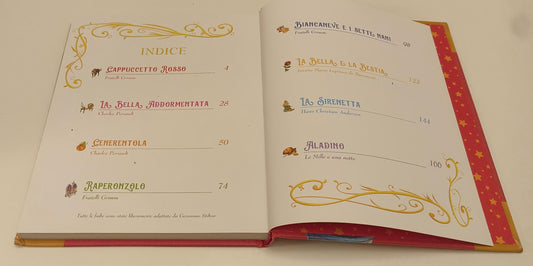 INDICE
CAPPUCCETTO ROSSO 4
Fratelli Grimm
LA BELLA ADDORMENTATA 28
Charles Perrault
CENERENTOLA 50
Charles Perrault
RAPERONZOLO 74
Fratelli Grimm
Tutte le fiabe sono state liberamente adattate da Geronimo Stilton
BIANCANEVE E I SETTE NANI 98
Fratelli Grimm
LA BELLA E LA BESTIA 122
Jeanne-Marie Leprince de Beaumont
LA SIRENETTA 144
Hans Christian Andersen
ALADINO 166
Le Mille e una notte